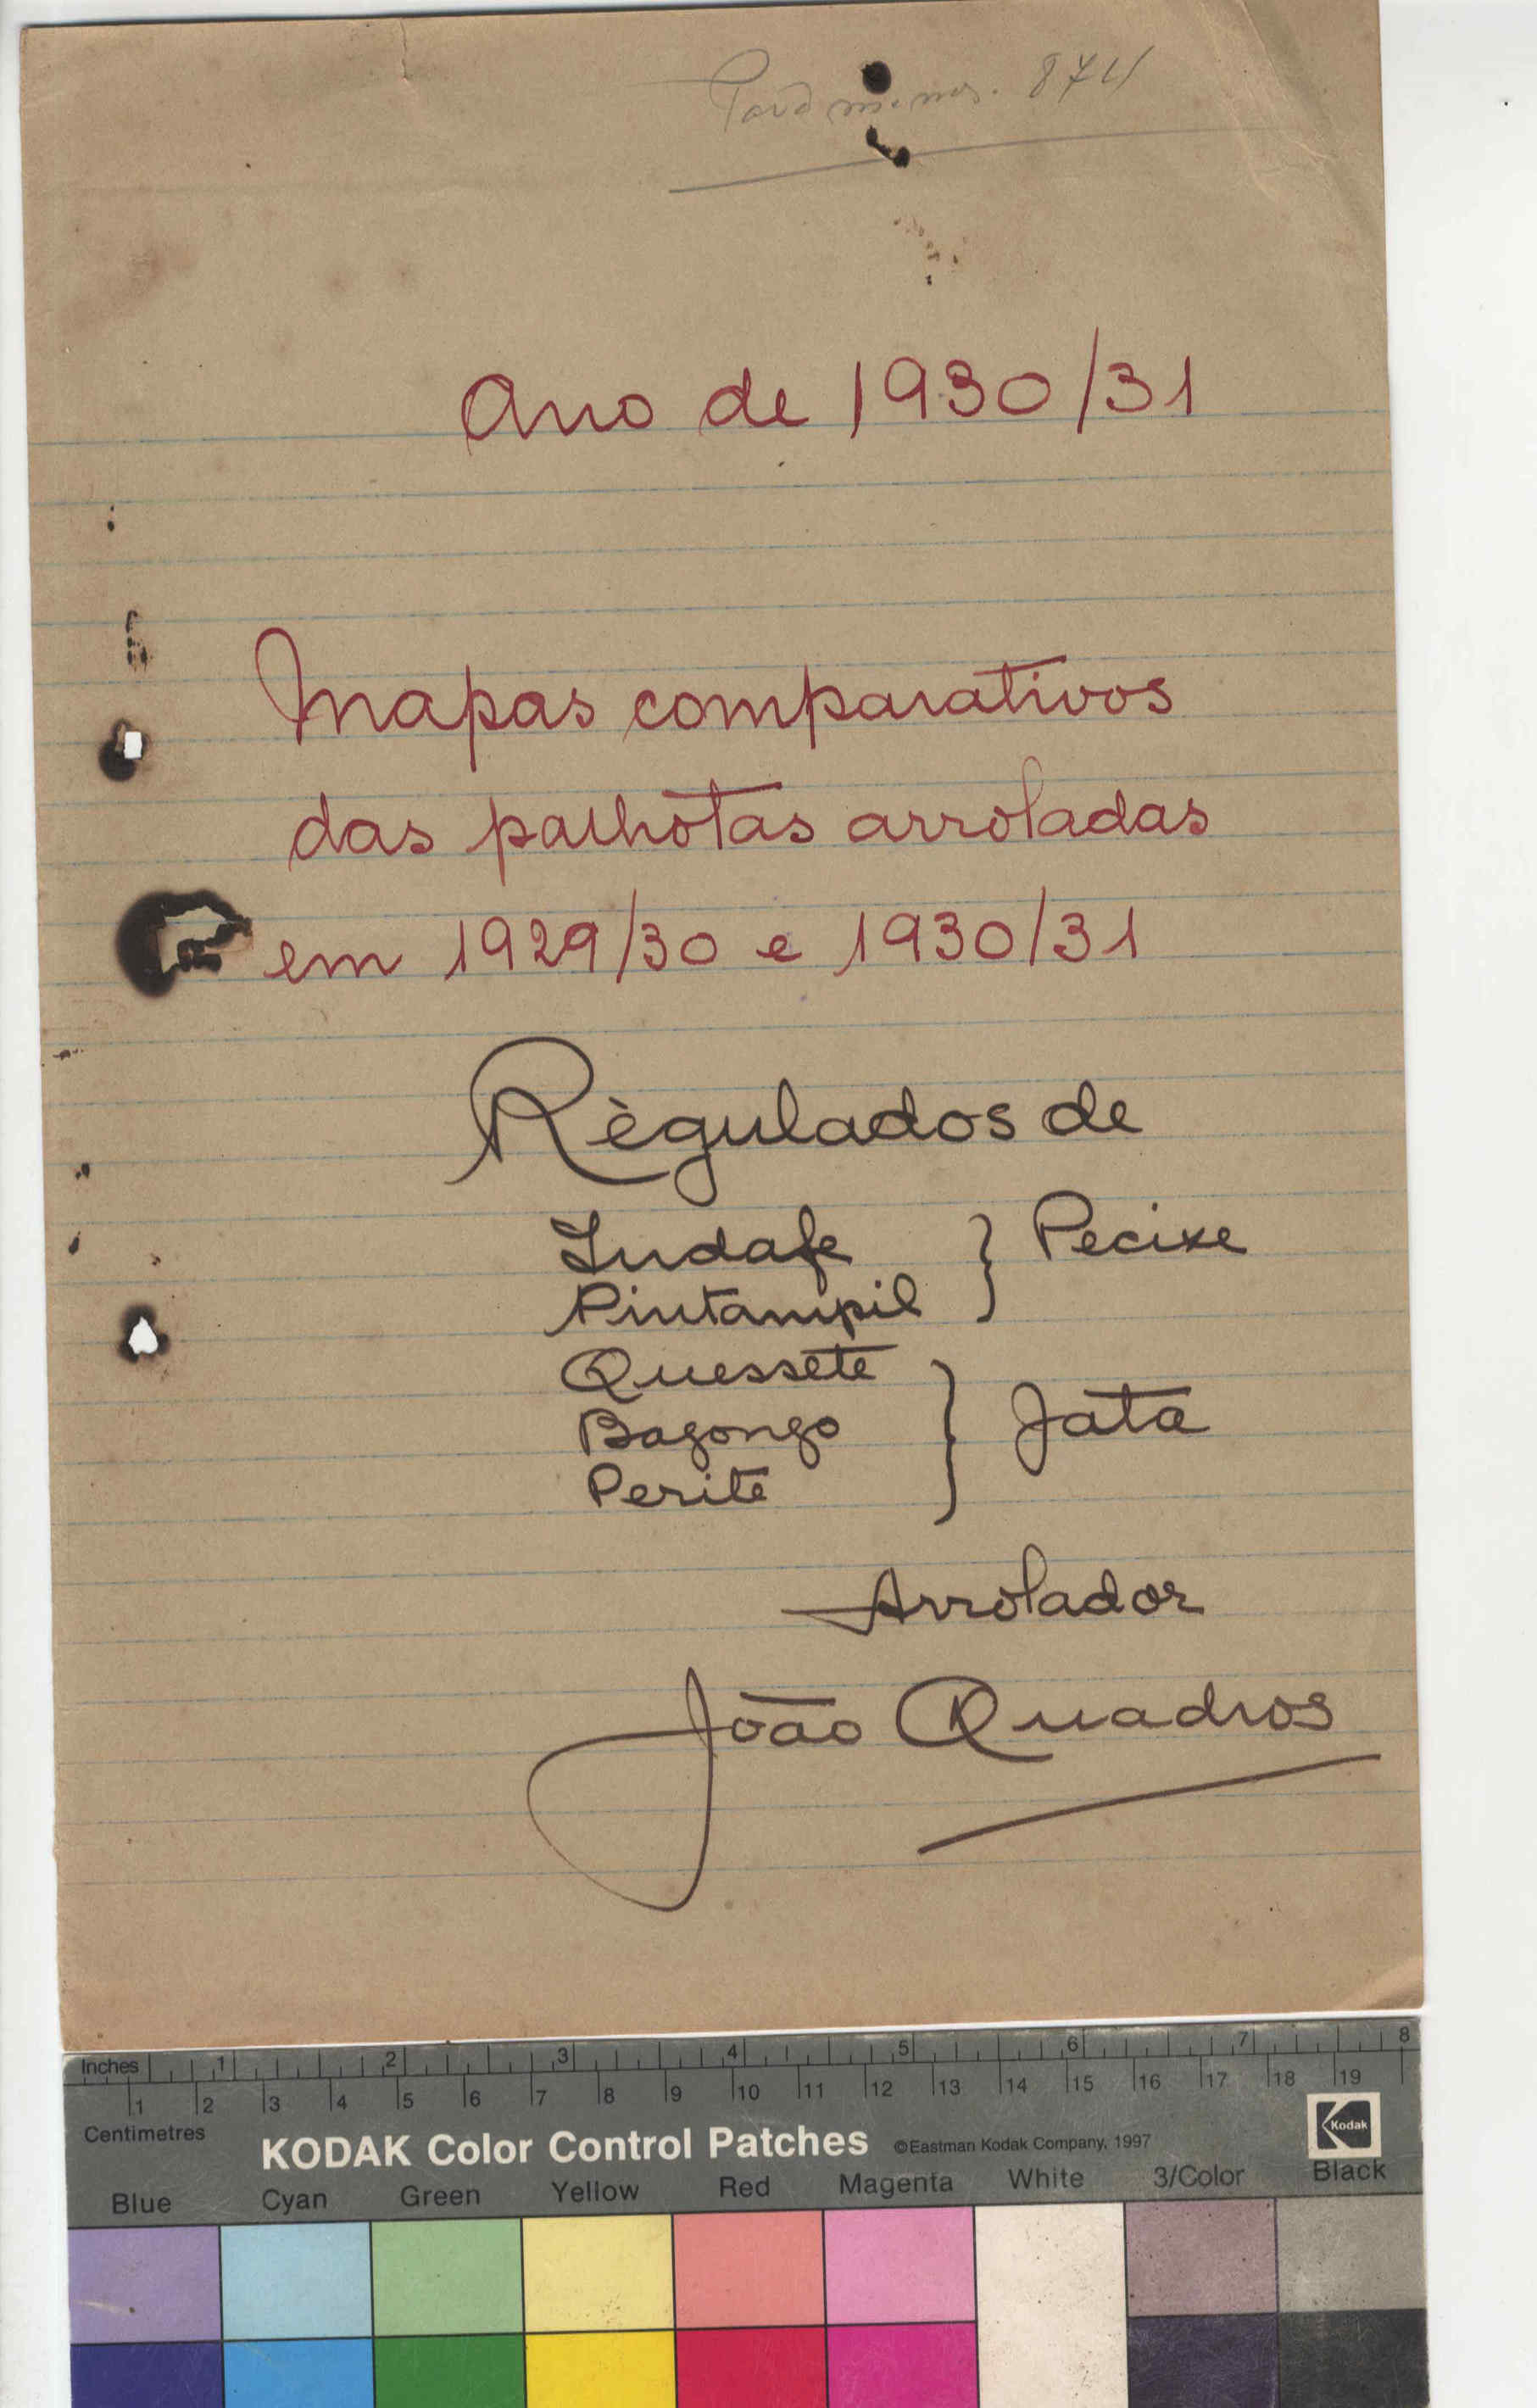 874
Ano de 1930/31
Mapas comparativos
das palhotas arroladas
em 1929/30 e 1930/31
Règulados de
Indafe } Pecixe
Pintampil
Quessete
Bagongo } Jata
Perite
Arrolador
João Quadros
Inches 1 2 3 4 5 6 7 8
1 2 3 4 5 6 7 8 9 10 11 12 13 14 15 16 17 18 19
Centimetres
KODAK Color Control Patches ©Eastman Kodak Company, 1997 Kodak
Blue Cyan Green Yellow Red Magenta White 3/Color Black